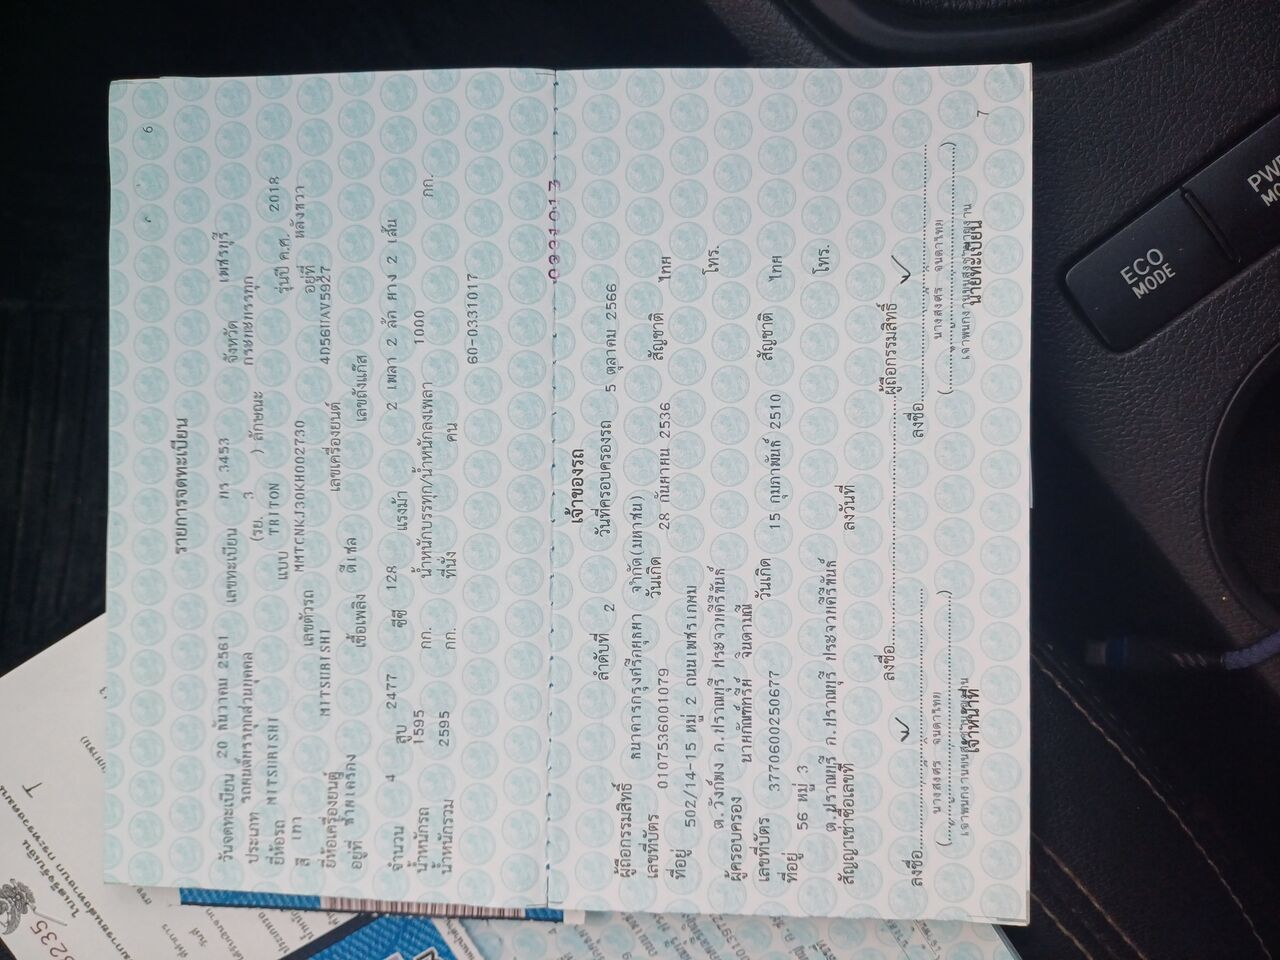 6
รายการจดทะเบียน
วันจดทะเบียน 20 ธันวาคม 2561 เลขทะเบียน 3453 จังหวัด เพชรบุรี
ประเภท รถยนต์บรรทุกส่วนบุคคล (รย. 3 ) ลักษณะ กระบะบรรทุก
ยี่ห้อรถ MITSUBISHI แบบ TRITON รุ่นปี ค.ศ. 2018
สี เทา เลขตัวรถ MMTCNKJ30KH002730 อยู่ที่ หลังขวา
ยี่ห้อเครื่องยนต์ MITSUBISHI เลขเครื่องยนต์ 4D56UAV5927
อยู่ที่ ซ้ายเครื่อง เชื้อเพลิง ดีเซล เลขถังแก๊ส
จำนวน 4 สูบ 2477 ซีซี 128 แรงม้า 2 เพลา 2 ล้อ ยาง 2 เส้น
น้ำหนักรถ 1595 กก. น้ำหนักบรรทุก/น้ำหนักลงเพลา 1000 กก.
น้ำหนักรวม 2595 กก. ที่นั่ง คน
60-0331017
เจ้าของรถ
ลำดับที่ 2 วันที่ครอบครองรถ 5 ตุลาคม 2566
ผู้ถือกรรมสิทธิ์ ธนาคารกรุงศรีอยุธยา จำกัด(มหาชน)
เลขที่บัตร 0107536001079 วันเกิด 28 กันยายน 2536 สัญชาติ ไทย
ที่อยู่ 502/14-15 หมู่ 2 ถนนเพชรเกษม
ต.วังก์พง อ.ปราณบุรี ประจวบคีรีขันธ์ โทร.
ผู้ครอบครอง จินดามณี
เลขที่บัตร 3770600250677 วันเกิด 15 กุมภาพันธ์ 2510 สัญชาติ ไทย
ที่อยู่ 56 หมู่ 3
ต.ปราณบุรี อ.ปราณบุรี ประจวบคีรีขันธ์ โทร.
สัญญาเช่าซื้อเลขที่ ลงวันที่
ลงชื่อ ผู้ถือกรรมสิทธิ์
ลงชื่อ ลงชื่อ
(นางสงศรี จนดาไทย) (นางสงศรี จนดาไทย)
เจ้าหน้าที่ นายทะเบียน
7
ECO
MODE